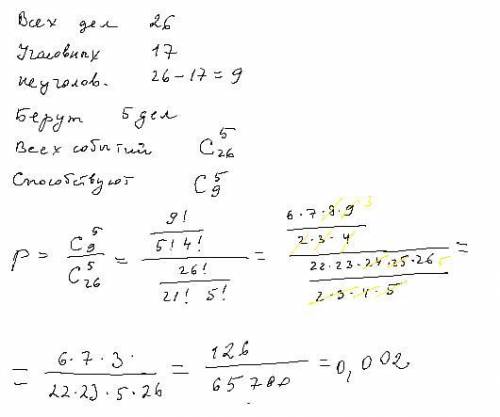 Всех дел 26
Уголовных 17
неуголов. 26-17=9
Берут 5 дел
Всех событий C₂₆⁵
Способствуют C₉⁵
P = C₉⁵ / C₂₆⁵ = (9! / 5! 4!) / (26! / 21! 5!) = (6·7·8·9 3 / 2·3·4) / (22·23·24·25·26 5 / 2·3·4·5) =
= 6·7·3· / 22·23·5·26 = 126 / 65780 = 0,002